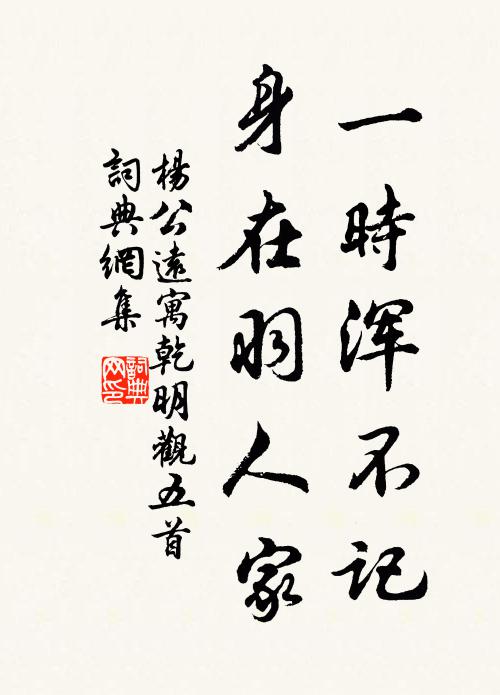 一時浑不記
身在羽人家
楊公遠寓乾明觀五首
詞典網集
詞典
网印